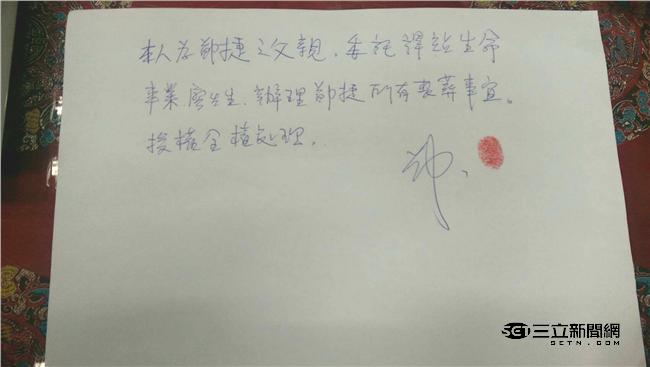 本人為鄭捷之父親，委託譯站生命
事業廖先生，辦理鄭捷所有喪葬事宜。
授權全權处理。
SET三立新聞網
SETN.COM